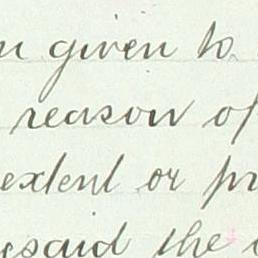 given to
reason of
extent or
said the